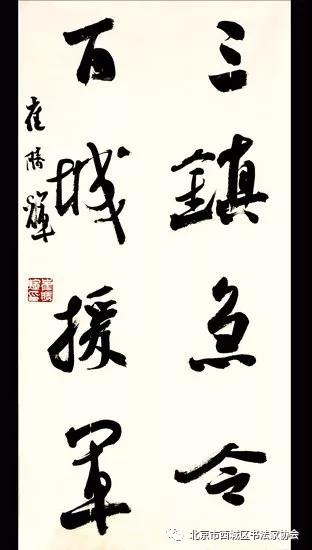 三鎮急令
百城援軍
崔勝輝
北京市西城区书法家协会